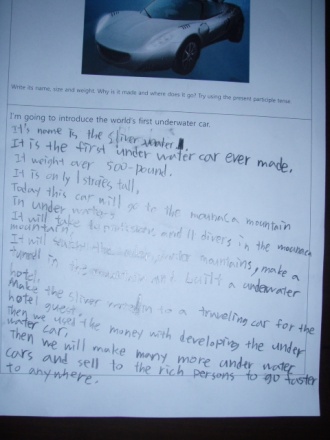 Write its name, size and weight. Why is it made and where does it go? Try using the present participle tense.
I'm going to introduce the world's first underwater car.
It's name is the Sliver water
It is the first under water car ever made.
It weight over 500-pound.
It is only 1 tall,
Today this car will go to the mountain
In under
It will take and 11 divers in the
mountain.
It will the mountains, make a
tunnel in and built a underwater
hotel.
Make the sliver to a traveling car for the
hotel guest.
Then we use the money with developing the under
water car,
Then we will make many more under water
cars and sell to the rich persons to go faster
to anywhere.